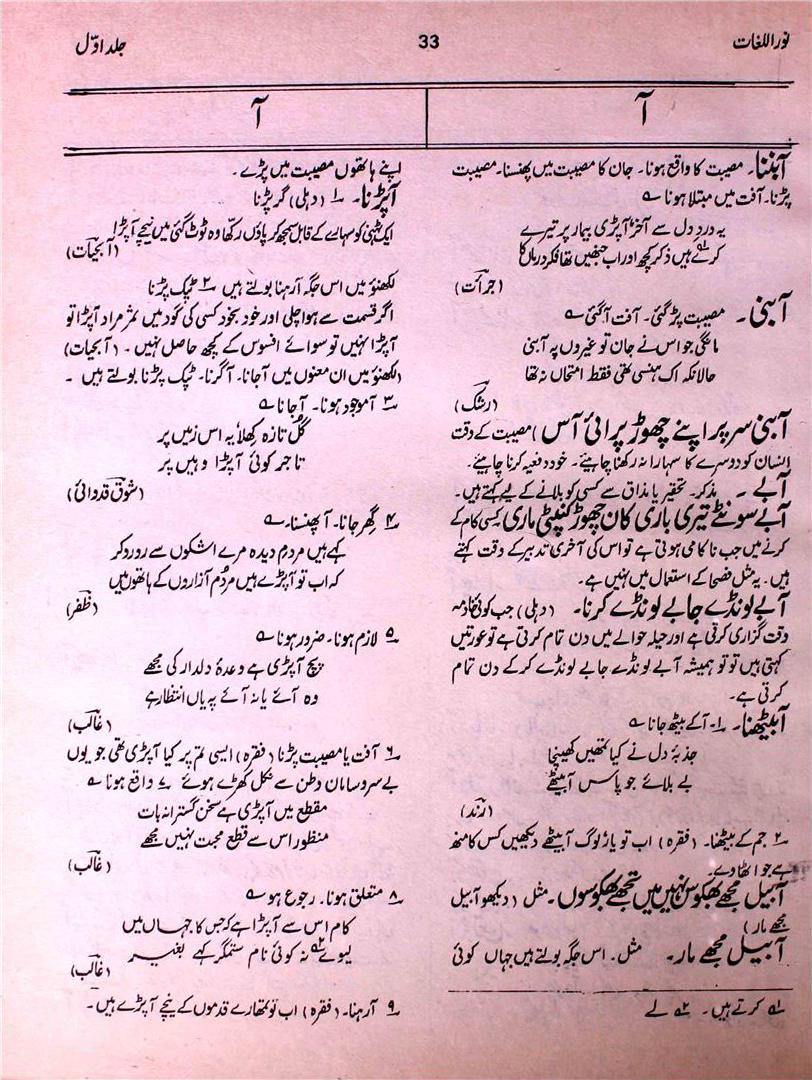 نور اللغات
33
جلد اوّل
آ
آ
آبننا۔ مصیبت کا واقع ہونا۔ جان کا مصیبت میں پھنسنا۔ مصیبت
پڑنا۔ آفت میں مبتلا ہونا ؎
یہ دردِ دل سے آخر آپڑی بیمار پر تیرے
کرتے ہیں ذکر کچھ اور اب جنھیں تھا فکر درماں کا
(جرأت)
آبنی۔ مصیبت پڑ گئی۔ آفت آگئی ؎
مانگی جو اس نے جان تو غیروں پہ آبنی
حالانکہ اک ہنسی تھی فقط امتحاں نہ تھا
(رشک)
آبنی سر پر اپنے چھوڑ پرائی آس) مصیبت کے وقت
انسان کو دوسرے کا سہارا نہ رکھنا چاہیئے۔ خود دفعیہ کرنا چاہیئے۔
آبے۔ مذکر۔ تحقیر یا مذاق سے کسی کو بلانے کے لیے کہتے ہیں۔
آبے سونٹے تیری باری کان چھوڑ کنپٹی ماری) کسی کام کے
کرنے میں جب ناکامی ہوتی ہے تو اس کی آخری تدبیر کے وقت کہتے
ہیں۔ یہ مثل فصحا کے استعمال میں نہیں ہے۔
آبے لونڈے جابے لونڈے کرنا۔ (دہلی) جب کوئی خادمہ
وقت گزاری کرتی ہے اور حیلہ حوالے میں دن تمام کرتی ہے تو عورتیں
کہتی ہیں تو تو ہمیشہ آبے لونڈے جابے لونڈے کرکے دن تمام
کرتی ہے۔
آبیٹھنا۔ ۱۔ آکے بیٹھ جانا ؎
جذبۂ دل نے کیا تمھیں کھینچا
بے بلائے جو پاس آبیٹھے
(رند)
۲ جم کے بیٹھنا۔ (فقرہ) اب تو یار لوگ آبیٹھے دیکھیں کس کا منھ
ہے جو اٹھا دے۔
آبیل مجھے بھکوس نہیں میں تجھے بھکوسوں۔ مثل (دیکھو آبیل
مجھے مار)
آبیل مجھے مار۔ مثل۔ اس جگہ بولتے ہیں جہاں کوئی
۱؎ کرتے ہیں۔ ۲؎ لے
اپنے ہاتھوں مصیبت میں پڑے۔
آپڑنا۔ ۱ (دہلی) گر پڑنا
ایک ٹہنی کو سہارے کے قابل سمجھ کر پاؤں رکھا وہ ٹوٹ گئی میں نیچے آپڑا
(آبحیات)
لکھنؤ میں اس جگہ آرہنا بولتے ہیں ۲ ٹپک پڑنا
اگر قسمت سے ہوا چلی اور خود بخود کسی کی گود میں ثمر مراد آپڑا تو
آپڑا نہیں تو سوائے افسوس کے کچھ حاصل نہیں۔ (آبحیات)
(لکھنؤ میں ان معنوں میں آجانا۔ آگرنا۔ ٹپک پڑنا بولتے ہیں۔
۳ آموجود ہونا۔ آجانا ؎
گُل تازہ کھلا یہ اس زمیں پر
تاجر کوئی آپڑا وہیں پر
(شوق قدوائی)
۴ گھر جانا۔ آپھنسنا۔ ؎
کہے ہیں مردمِ دیدہ مرے اشکوں سے رو رو کر
کہ اب تو آپڑے ہیں مردُم آزاروں کے ہاتھوں میں
(ظفر)
۵ لازم ہونا۔ ضرور ہونا ؎
بیچ آپڑی ہے وعدۂ دلدار کی مجھے
وہ آئے یا نہ آئے پہ یاں انتظار ہے
(غالب)
۶ آفت یا مصیبت پڑنا (فقرہ) ایسی تم پر کیا آپڑی تھی جو یوں
بے سر و سامان وطن سے نکل کھڑے ہوئے ۷ واقع ہونا ؎
مقطع میں آپڑی ہے سخن گسترانہ بات
منظور اس سے قطع محبت نہیں مجھے
(غالب)
۸ متعلق ہونا۔ رجوع ہو ؎
کام اس سے آپڑا ہے کہ جس کا جہاں میں
لیوے ۲؎ نہ کوئی نام ستمگر کہے بغیر
(غالب)
۹ آرہنا۔ (فقرہ) اب تو تمھارے قدموں کے نیچے آپڑے ہیں۔